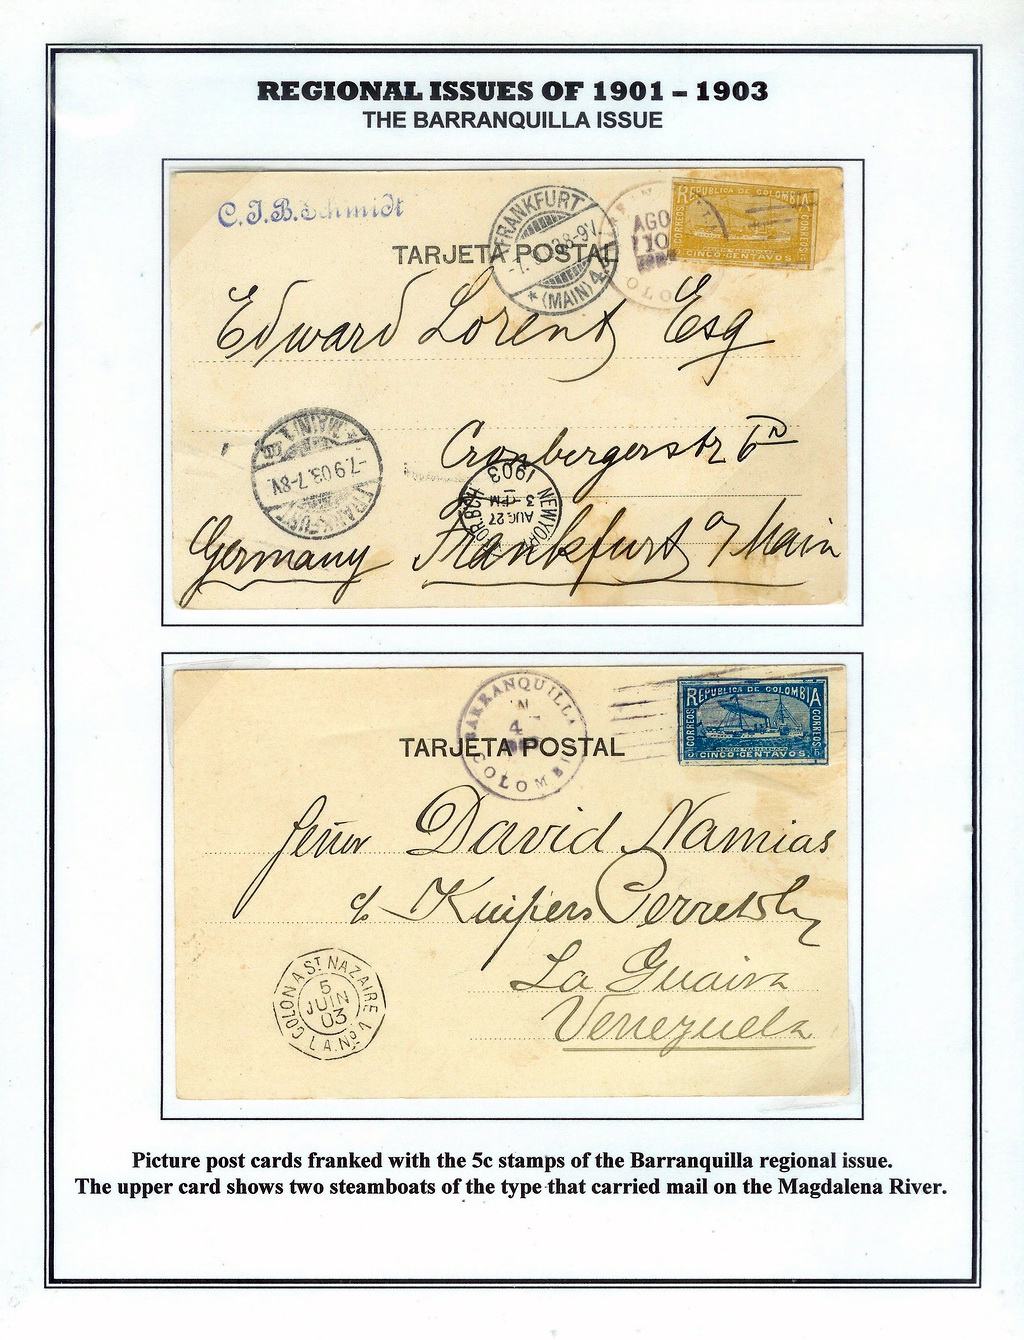 REGIONAL ISSUES OF 1901 – 1903
THE BARRANQUILLA ISSUE
C. J. B. Schmidt
FRANKFURT
* (MAIN) 4.
AGO
10
COLO
REPUBLICA DE COLOMBIA
CORREOS
CORREOS
CINCO-CENTAVOS.
TARJETA POSTAL
Edward Lorent Esq
Cronbergerstr
* MAIN 1
-7.9.03.7-8V.
FRANKFURT
NEW YOR
AUG 27
3- PM
1903
Germany Frankfurt a/ Main
BARRANQUILLA
4
COLOMBI
REPUBLICA DE COLOMBIA
CORREOS
CORREOS
CINCO-CENTAVOS.
TARJETA POSTAL
Señor David Namias
c/o Kuipers
La Guaira
Venezuela
COLON A ST NAZAIRE
5
JUIN
03
L A. No
Picture post cards franked with the 5c stamps of the Barranquilla regional issue.
The upper card shows two steamboats of the type that carried mail on the Magdalena River.